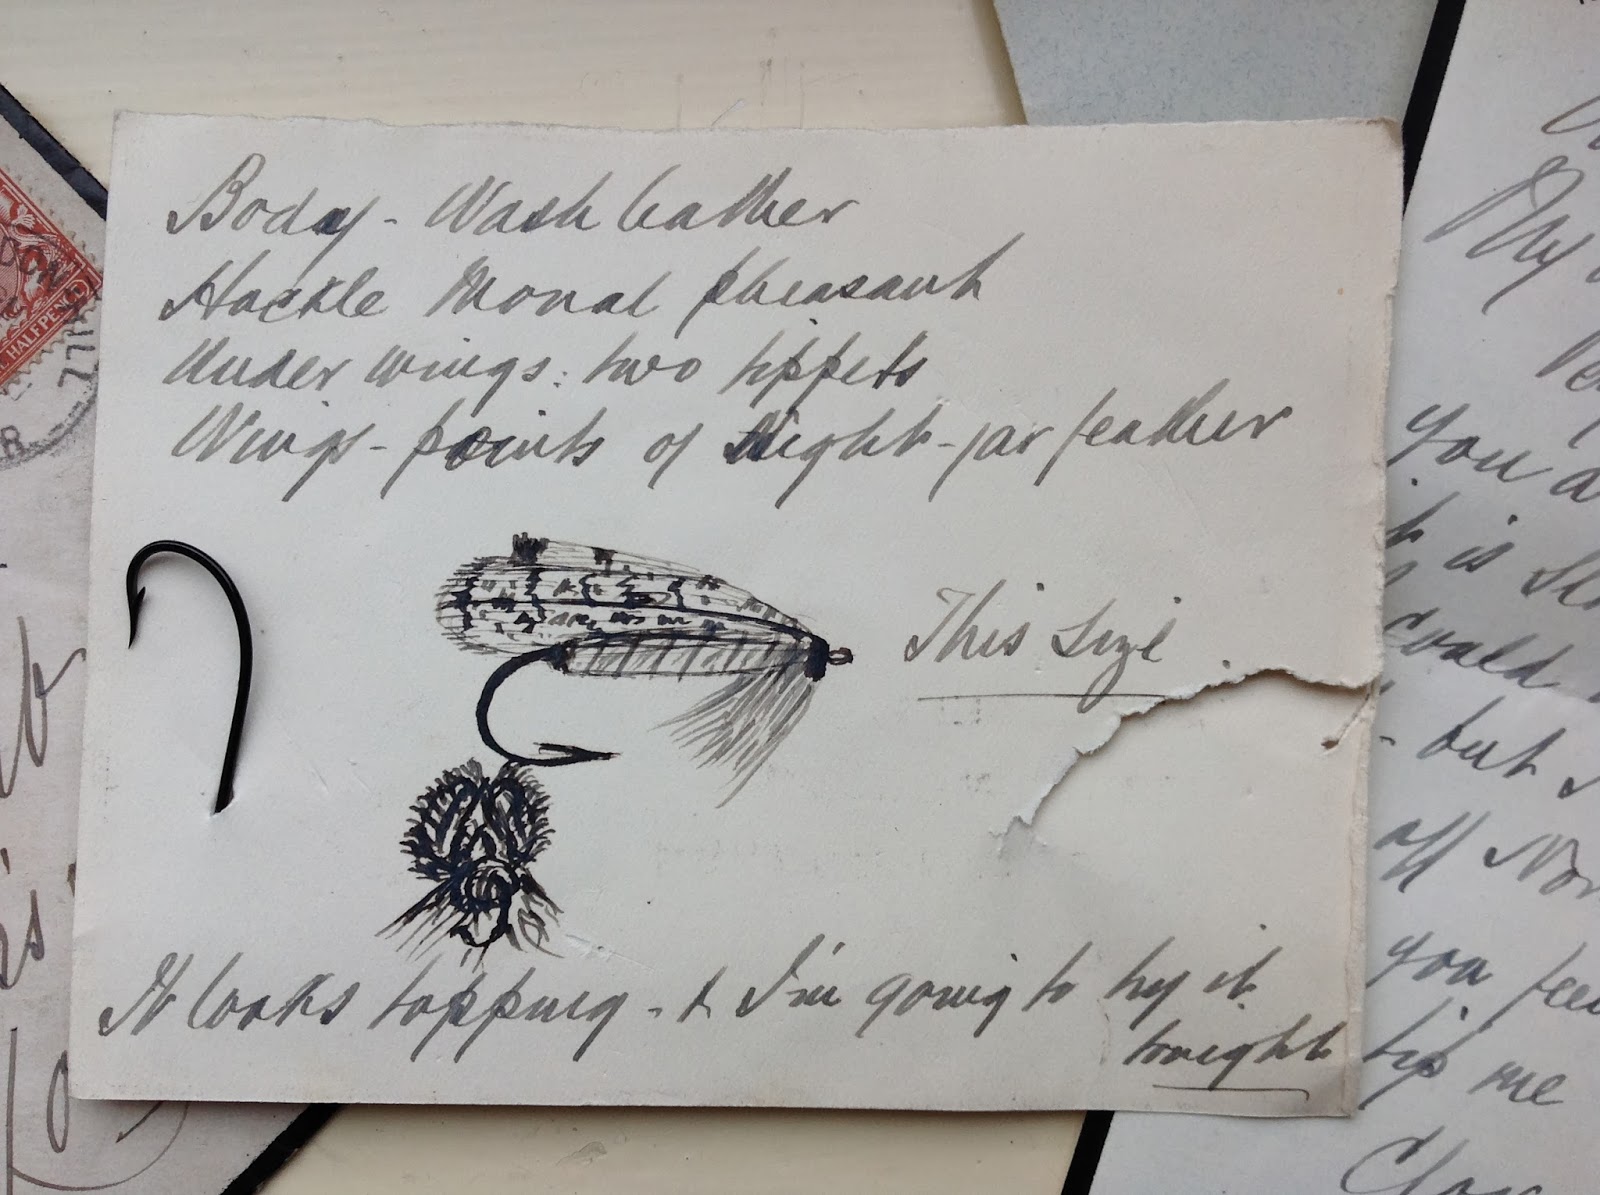 Body - Wash leather
Hackle Monal pheasant
Under wings: two tippets
Wings - points of Night-jar feather
This size
It looks topping - & I'm going to try it
tonight
HALFPENNY
R
My
You
it is
could
- but
off Nor
you feel
tip me